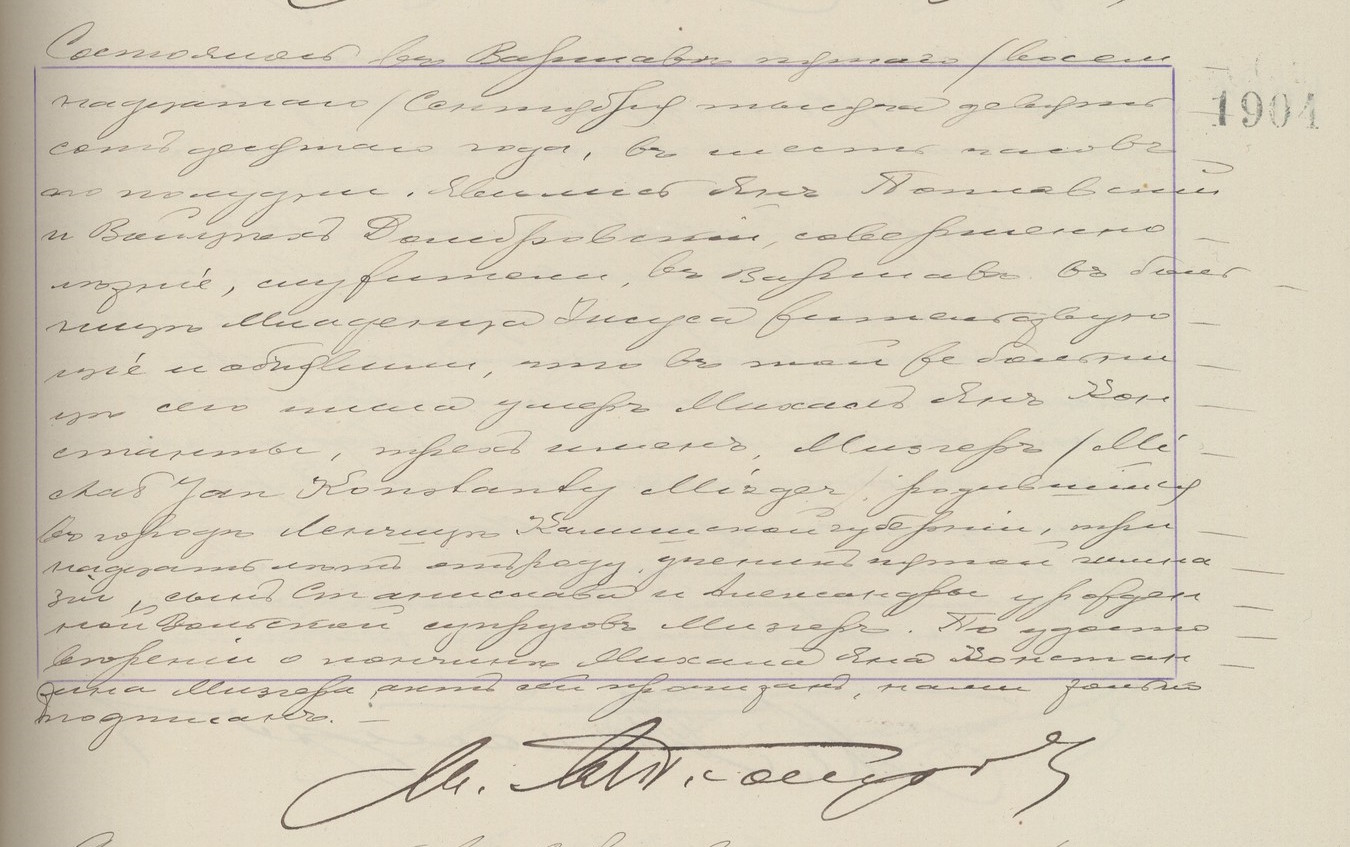 Состоялось въ Варшавѣ пятаго /восем
надцатаго/ Сентября тысяча девять
1904
сотъ десятаго года, въ шесть часовъ
по полудни. Явились Янъ Поплавскій
и Войцехъ Домбровскій, совершенно
лѣтніе, служители, въ Варшавѣ въ боль
ницѣ Младенца Іисуса жительствую
щіе и объявили, что въ той же больни
цѣ сего числа умеръ Михаилъ Янъ Кон
станты, трехъ именъ, Мизгеръ /Mi
chał Jan Konstanty Mizger/ родившійся
въ городѣ Ленчицѣ Калишской губерніи, три
надцать лѣтъ отъ роду, ученикъ пятой гимна
зіи, сынъ Станислава и Александры урожден
ной Вольской супруговъ Мизгеръ. По удосто
вѣреніи о кончинѣ Михаила Яна Констан
Мизгера, актъ сей прочитанъ, нами только
подписанъ.